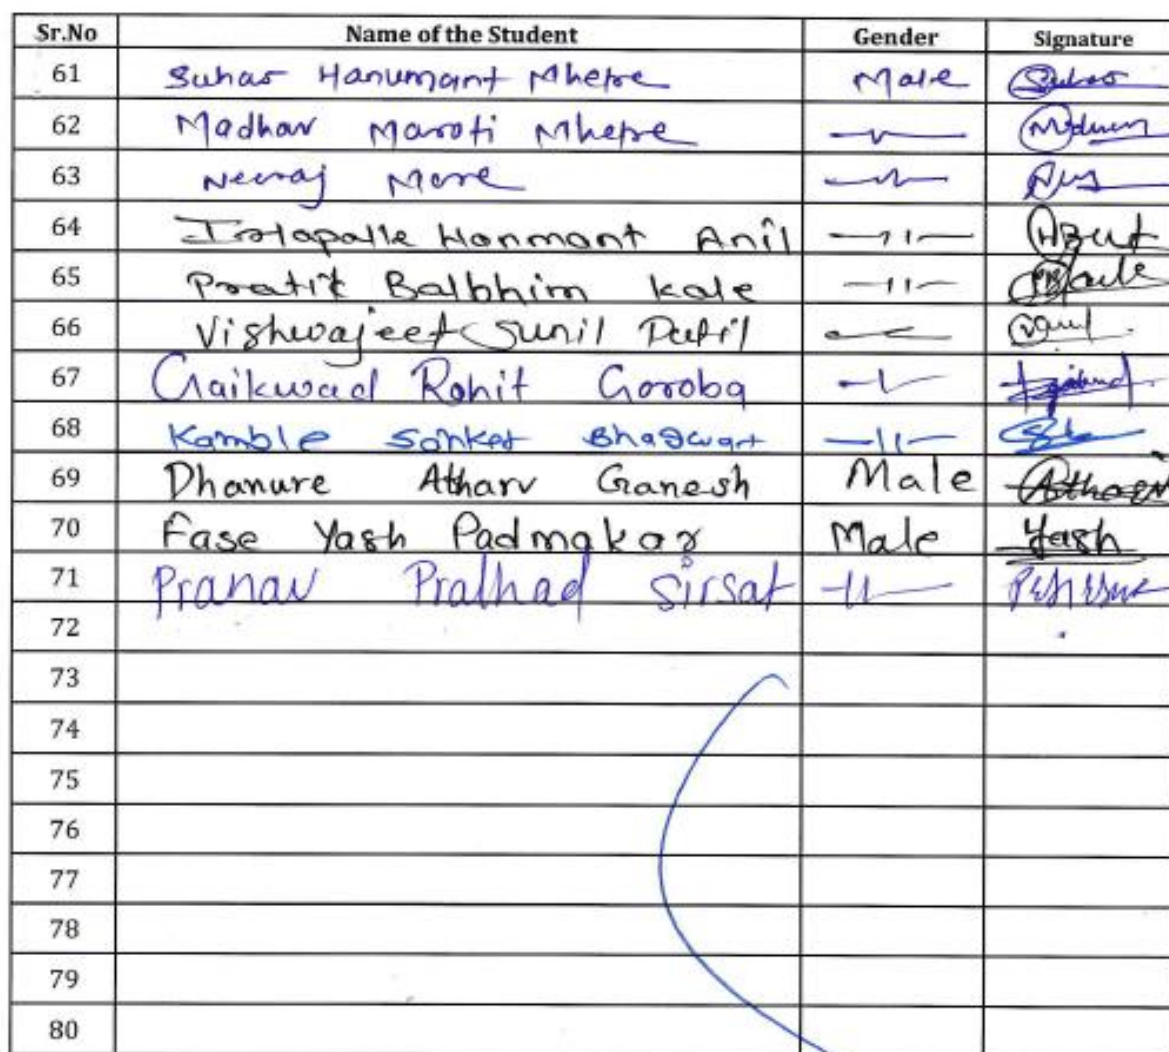 Sr.No Name of the Student Gender Signature
61 Suhas Hanumant Mhetre Male Suhas
62 Madhav Maroti Mhetre
63 Neeraj More
64 Honmant Anil
65 Pratik Balbhim Kale
66 Vishwajeet Sunil Patil
67 Gaikwad Rohit Goroba
68 Kamble Sanket Bhagwat
69 Dhanure Atharv Ganesh Male Atharv
70 Fase Yash Padmakar Male Yash
71 Pranav Pralhad Sirsat
72
73
74
75
76
77
78
79
80